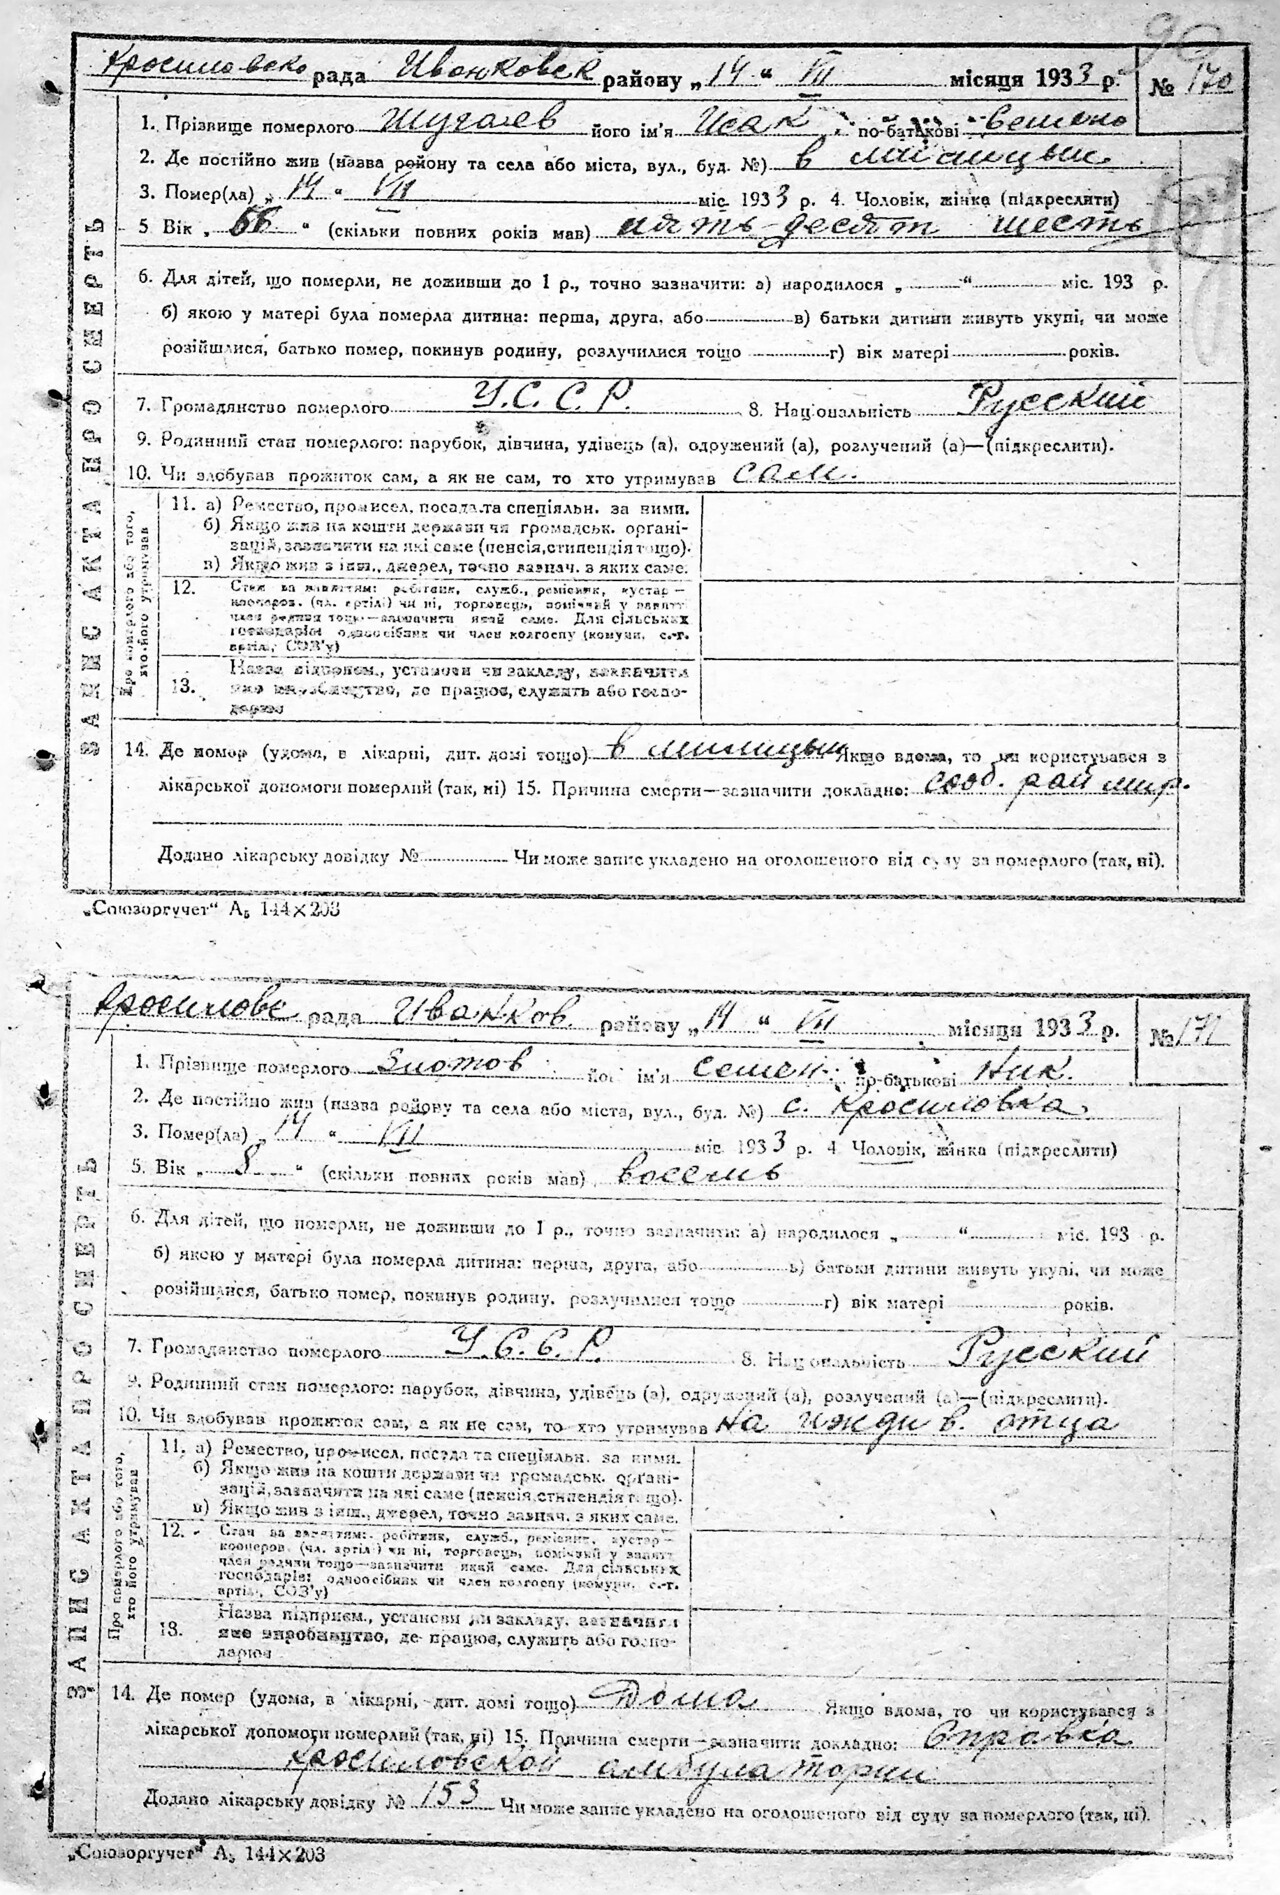 Кросиловско рада Иванковск району „14“ VII місяця 1933 р. № 170
1. Прізвище померлого Шугаев його ім'я Исак по-батькові
2. Де постійно жив (назва району та села або міста, вул., буд. №) в
3. Помер(ла) „14“ VII міс. 1933 р. 4. Чоловік, жінка (підкреслити)
5 Вік „56“ (скільки повних років мав) пять десят шесть
6. Для дітей, що померли, не доживши до 1 р., точно зазначити: а) народилося „ “ міс. 193 р.
б) якою у матері була померла дитина: перша, друга, або в) батьки дитини живуть укупі, чи може
розійшлися, батько помер, покинув родину, розлучилися тощо г) вік матері років.
7. Громадянство померлого У.С.С.Р. 8. Національність Русский
9. Родинний стан померлого: парубок, дівчина, удівець (а), одружений (а), розлучений (а)—(підкреслити).
10. Чи здобував прожиток сам, а як не сам, то хто утримував сам.
ЗАПИС АКТА ПРО СМЕРТЬ
Про померлого або того, хто його утримував
11. а) Ремество, промисел, посада та спеціяльн. за ними.
б) Якщо жив на кошти держави чи громадськ. органі-
зацій, зазначити на які саме (пенсія, стипендія тощо).
в) Якщо жив з інш., джерел, точно зазнач. з яких саме.
12. Стан за заняттям: робітник, служб., ремісник, кустар—
кооперов. (чл. артілі) чи ні, торговець, помічний у занятт
член родини тощо—зазначити який саме. Для сільських
господарів: одноосібник чи член колгоспу (комуни, с.-г.
артілі, СОЗ'у)
13. Назва підприєм., установи чи закладу, зазначити
яке виробництво, де працює, служить або госпо-
дарює
14. Де помер (удома, в лікарні, дит. домі тощо) в Якщо вдома, то чи користувався з
лікарської допомоги померлий (так, ні) 15. Причина смерти—зазначити докладно: сооб. рай
Додано лікарську довідку № Чи може запис укладено на оголошеного від суду за померлого (так, ні).
„Союзоргучет“ А₅ 144×203
Кросиловс рада Иванков. району „14“ VII місяця 1933 р. № 171
1. Прізвище померлого Злотов його ім'я Семен по-батькові Ник.
2. Де постійно жив (назва району та села або міста, вул., буд. №) с. Кросиловка
3. Помер(ла) „14“ VII міс. 1933 р. 4. Чоловік, жінка (підкреслити)
5. Вік „8“ (скільки повних років мав) восемь
6. Для дітей, що померли, не доживши до 1 р., точно зазначити: а) народилося „ “ міс. 193 р.
б) якою у матері була померла дитина: перша, друга, або в) батьки дитини живуть укупі, чи може
розійшлися, батько помер, покинув родину, розлучилися тощо г) вік матері років.
7. Громадянство померлого У.С.С.Р. 8. Національність Русский
9. Родинний стан померлого: парубок, дівчина, удівець (а), одружений (а), розлучений (а)—(підкреслити).
10. Чи здобував прожиток сам, а як не сам, то хто утримував на иждив. отца
ЗАПИС АКТА ПРО СМЕРТЬ
Про померлого або того, хто його утримував
11. а) Ремество, промисел, посада та спеціяльн. за ними.
б) Якщо жив на кошти держави чи громадськ. органі-
зацій, зазначити на які саме (пенсія, стипендія тощо).
в) Якщо жив з інш., джерел, точно зазнач. з яких саме.
12. Стан за заняттям: робітник, служб., ремісник, кустар—
кооперов. (чл. артілі) чи ні, торговець, помічний у занятт
член родини тощо—зазначити який саме. Для сільських
господарів: одноосібник чи член колгоспу (комуни, с.-г.
артілі, СОЗ'у)
13. Назва підприєм., установи чи закладу, зазначити
яке виробництво, де працює, служить або госпо-
дарює
14. Де помер (удома, в лікарні, дит. домі тощо) Дома Якщо вдома, то чи користувався з
лікарської допомоги померлий (так, ні) 15. Причина смерти—зазначити докладно: Справка
Кросиловской амбулатории
Додано лікарську довідку № 153 Чи може запис укладено на оголошеного від суду за померлого (так, ні).
„Союзоргучет“ А₅ 144×203